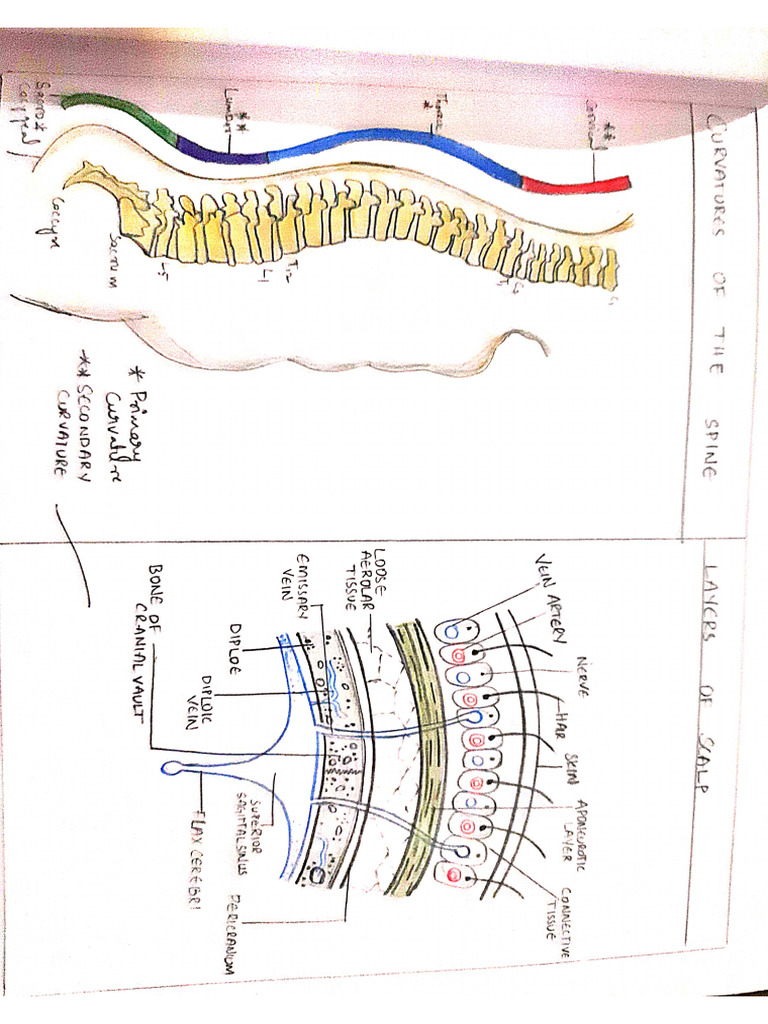 CURVATURES OF THE SPINE
**
Cervical
Thoracic
*
**
Lumbar
Sacro *
Coccygeal
C1
C7
T1
T12
L1
L5
Sacrum
Coccyx
* Primary
Curvature
** SECONDARY
CURVATURE
LAYERS OF SCALP
VEIN
ARTERY
NERVE
HAIR
SKIN
APONEUROTIC
LAYER
CONNECTIVE
TISSUE
LOOSE
AEROLAR
TISSUE
EMISSARY
VEIN
DIPLOE
DIPLOIC
VEIN
BONE OF
CRANIAL VAULT
SUPERIOR
SAGITTAL SINUS
FLAX CEREBRI
PERICRANIUM